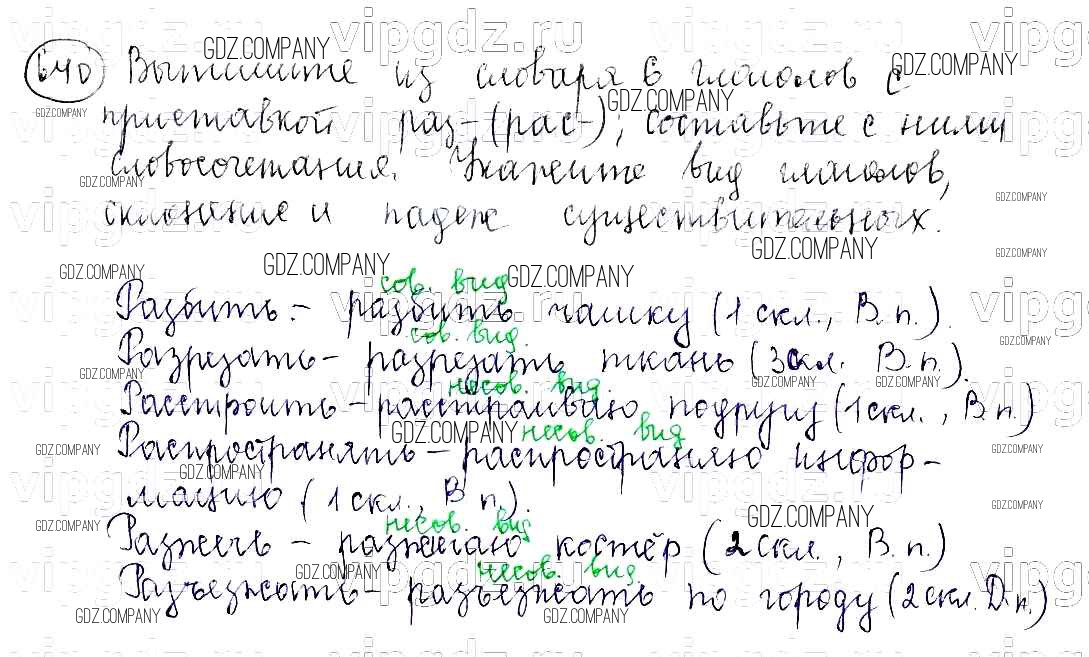 640 Выпишите из словаря 6 глаголов с
приставкой раз-(рас-); составьте с ними
словосочетания. Укажите вид глаголов,
склонение и падеж существительных.
сов. вид
Разбить - разбить чашку (1 скл., В.п.)
сов. вид.
Разрезать - разрезать ткань (3 скл. В.п.).
несов. вид.
Расстроить - расстраиваю подругу (1 скл., В п.)
несов. вид
Распространять - распространяю инфор-
мацию (1 скл., В п.).
несов. вид
Разжечь - разжигаю костёр (2 скл., В.п.)
несов. вид.
Разъезжать - разъезжать по городу (2 скл. Д.п.)
vipgdz.ru
GDZ.COMPANY